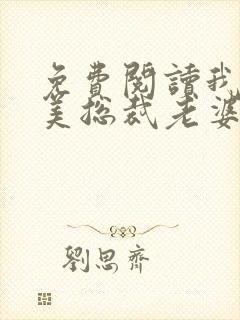 免費閱讀我
美总裁老婆
劉思齊